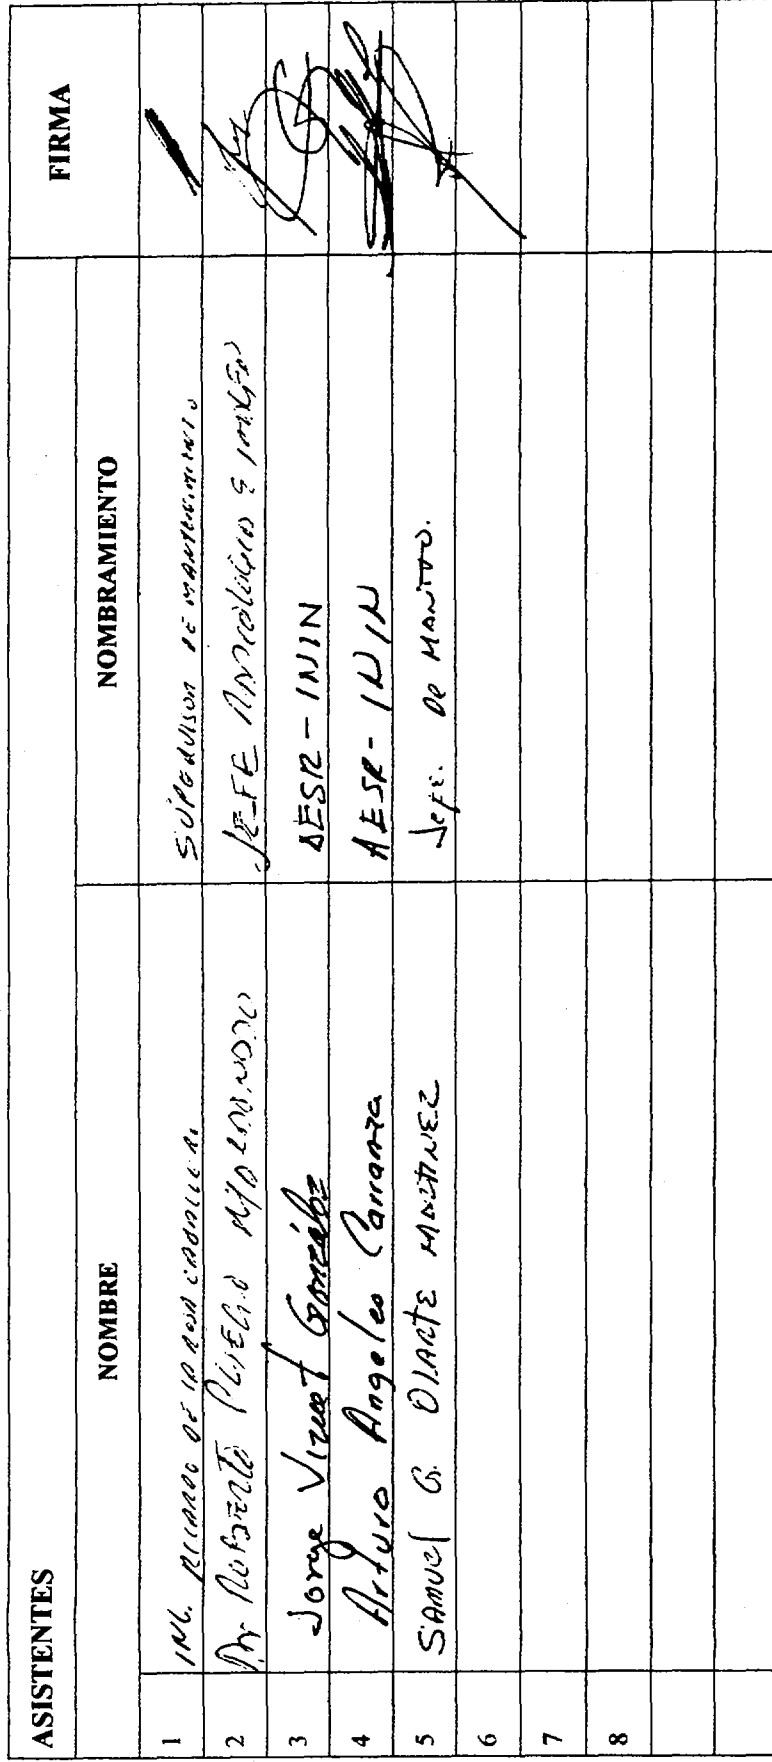 ASISTENTES
NOMBRE NOMBRAMIENTO FIRMA
1 ING. RICARDO DE LA ROSA SUPERVISOR DE MANTENIMIENTO
2 ROBERTO JEFE E IMAGEN
3 Jorge González AESR-ININ
4 Arturo Angeles Carranza AESR-ININ
5 SAMUEL G. OLARTE MARTINEZ Jefe. De MANTTO.
6
7
8